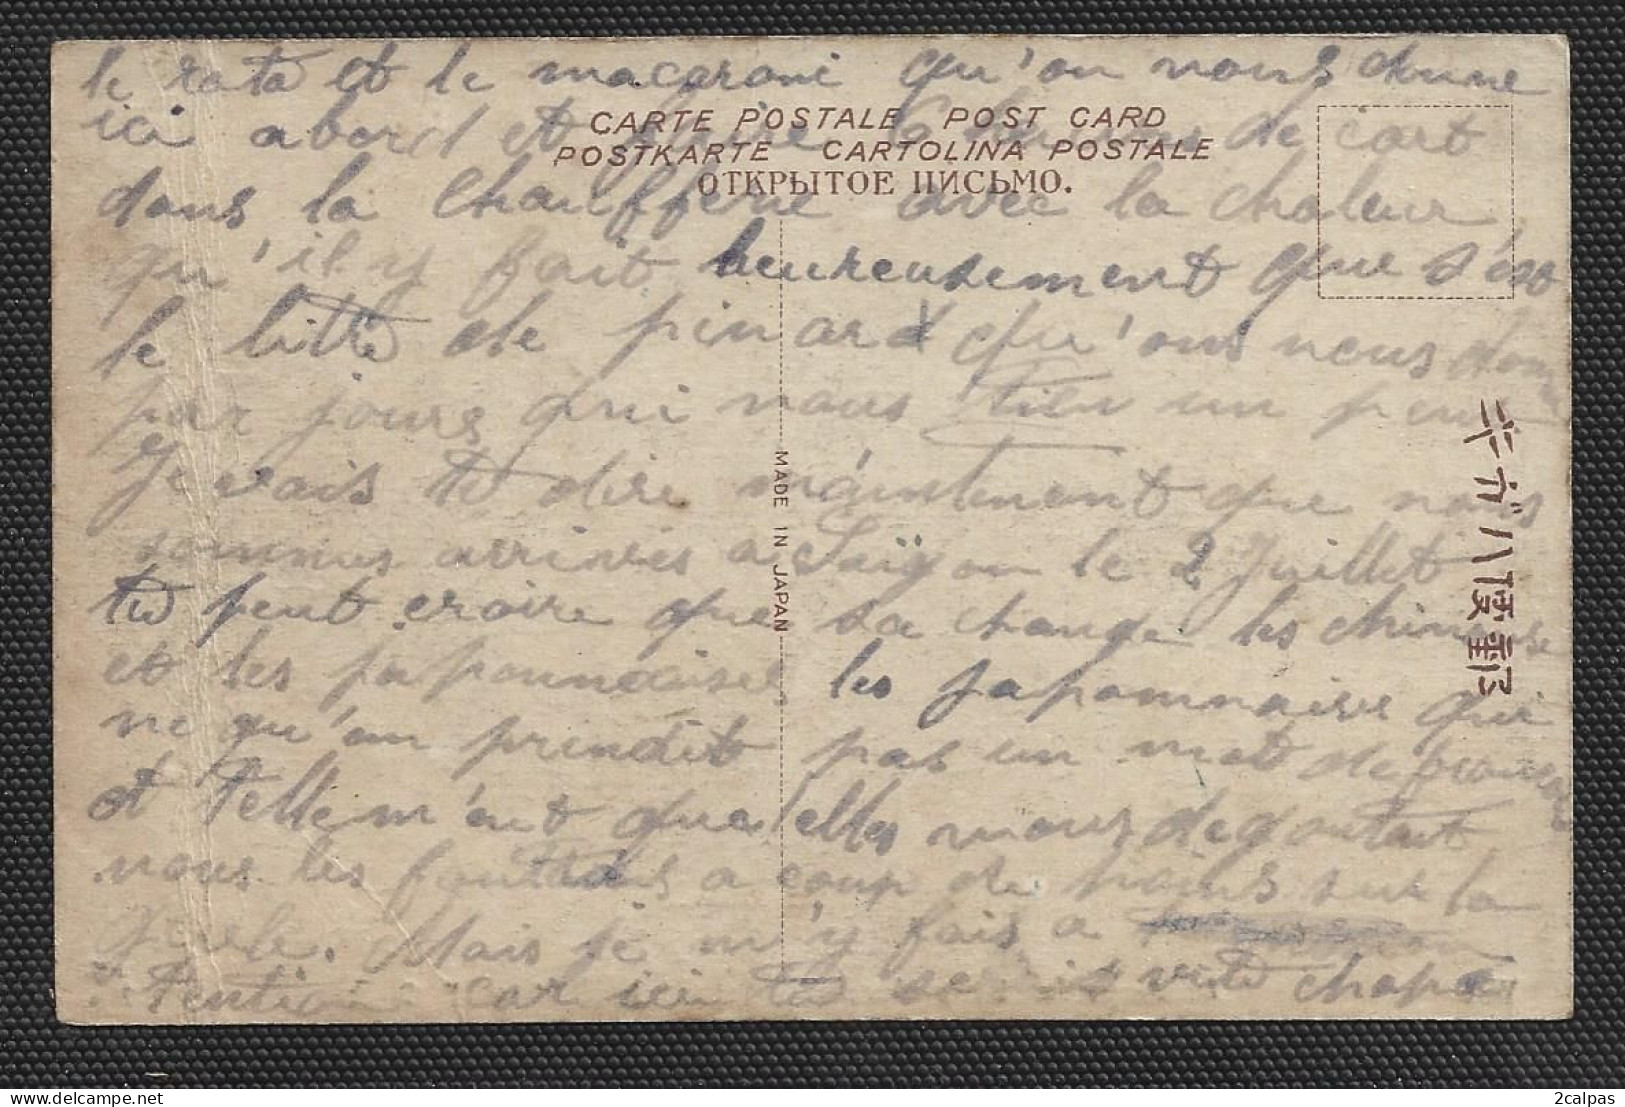 le rata et le macaroni qu'on nous donne
ici abord et faire de cart
CARTE POSTALE POST CARD
POSTKARTE CARTOLINA POSTALE
ОТКРЫТОЕ ПИСЬМО.
dans la chaufferie avec la chaleur
qu'il y fait heureusement que s'est
le littre de pinard qu'ons nous donne
par jours qui nous tien un peut
Je vais te dire maintenant que nous
sommes arrivés a Saïgon le 2 Juillet
tu peut croire que sa change les chinoise
et les japonnaises les japonnaise qui
ne qu'on prendit pas un mot de francais
et tellem'ent que elles nous degoutait
nous les foutions a coup de poings sur la
gueule. Mais je m'y fais a
tention car ici tu serait vite chopé
MADE IN JAPAN
郵便八ガキ
2calpas